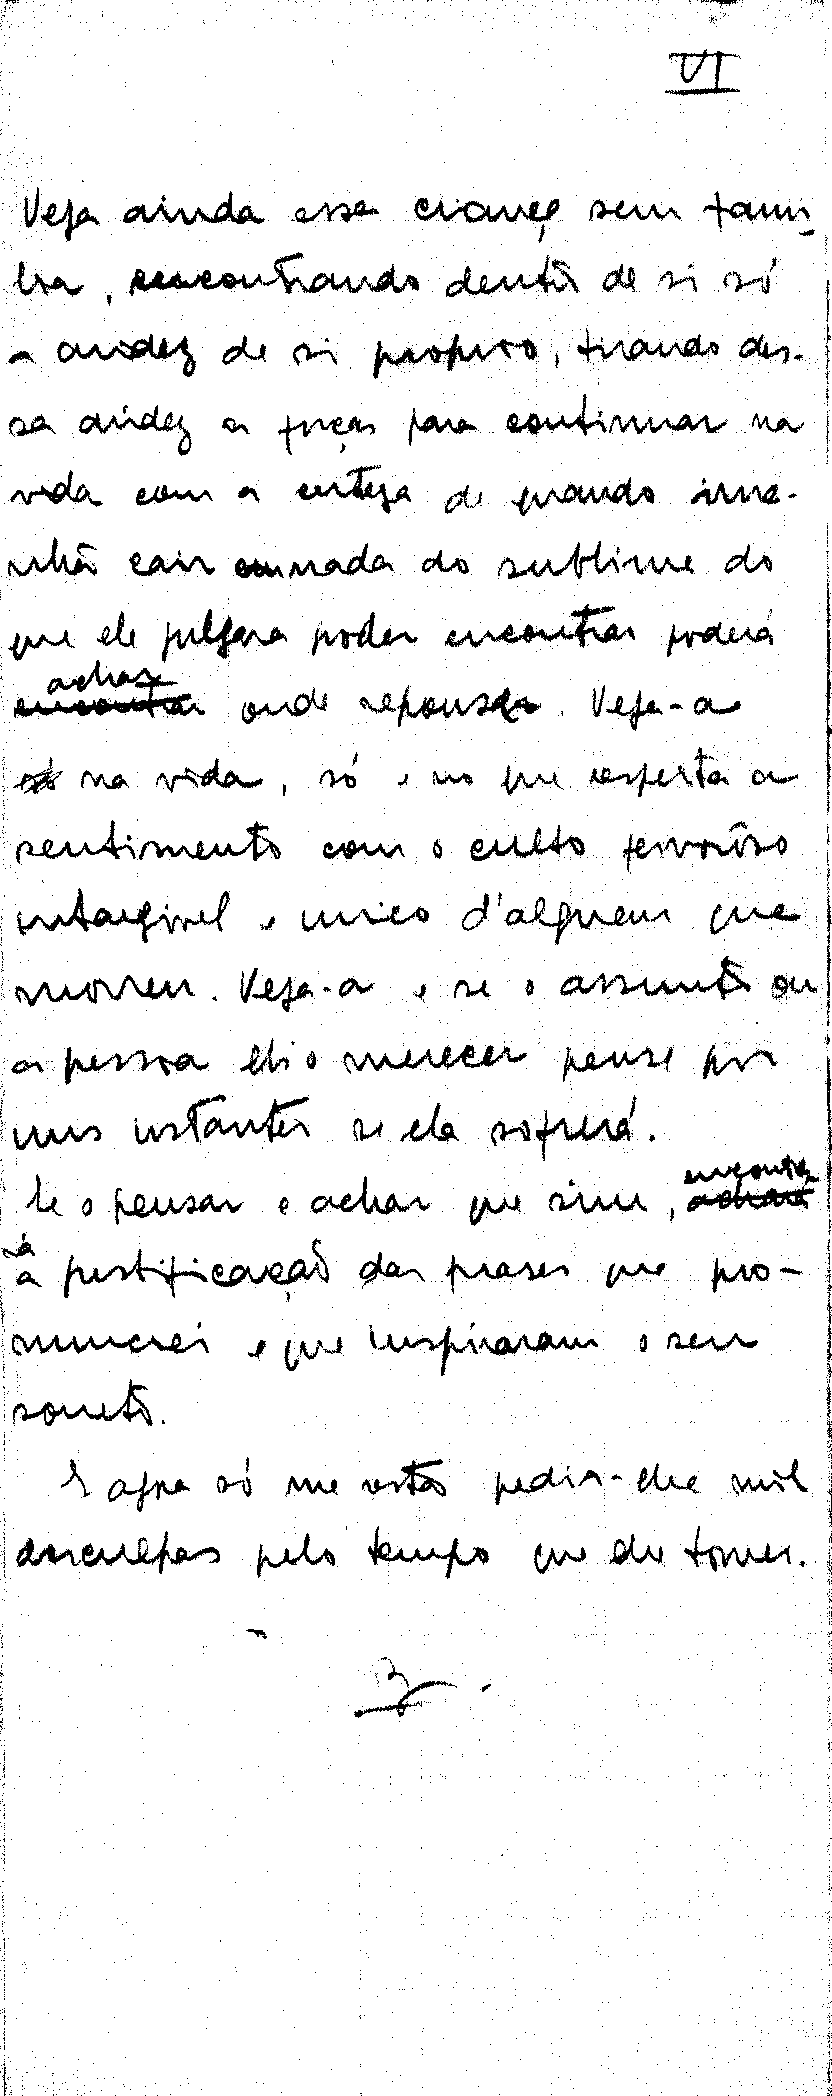 VI
Veja ainda essa criança sem fami-
lia, encontrando dentro de si só
a aridez de si proprio, tirando des-
sa aridez as forças para continuar na
vida com a certeza de quando áma-
nhã cair em nada do sublime do
que ele julgara poder encontrar poderá
achar
encontrar onde repousar. Veja-a
só na vida, só e no que respeita a
sentimento com o culto fervorôso
intangivel e unico d'alguem que
morreu. Veja-a e se o assunto ou
a pessoa lh'o merecer pense por
uns instantes se ela sofrerá.
Se o pensar e achar que sim, encontra-
achará
rá
a justificação das frases que pro-
nunciei e que inspiraram o seu
soneto.
E agora só me resta pedir-lhe mil
desculpas pelo tempo que lhe tomei.